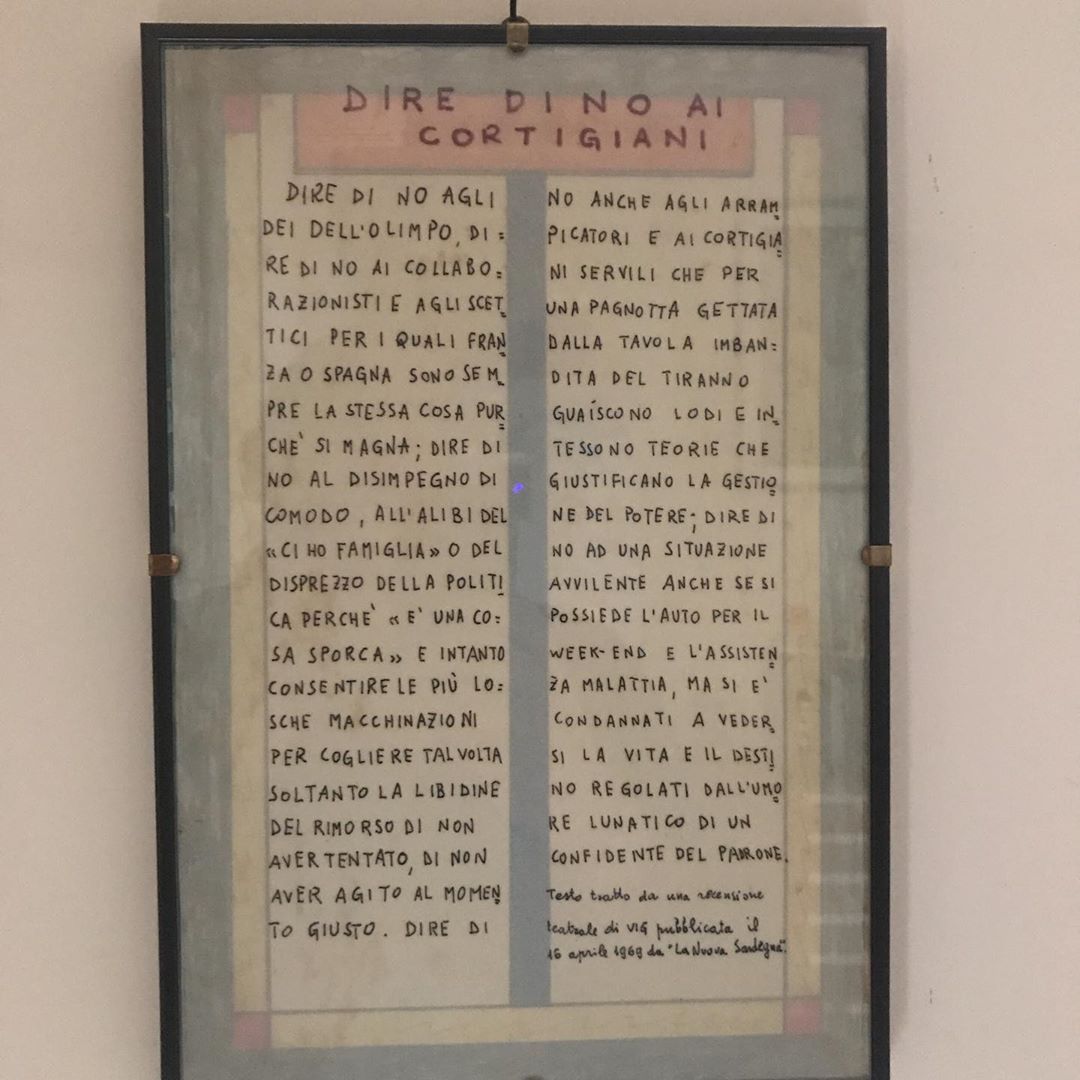 DIRE DI NO AI
CORTIGIANI
DIRE DI NO AGLI
DEI DELL'OLIMPO, DI=
RE DI NO AI COLLABO=
RAZIONISTI E AGLI SCET=
TICI PER I QUALI FRAN=
ZA O SPAGNA SONO SEM=
PRE LA STESSA COSA PUR=
CHE' SI MAGNA; DIRE DI
NO AL DISIMPEGNO DI
COMODO, ALL'ALIBI DEL
«CI HO FAMIGLIA» O DEL
DISPREZZO DELLA POLITI=
CA PERCHE' «E' UNA CO=
SA SPORCA» E INTANTO
CONSENTIRE LE PIÙ LO=
SCHE MACCHINAZIONI
PER COGLIERE TALVOLTA
SOLTANTO LA LIBIDINE
DEL RIMORSO DI NON
AVER TENTATO, DI NON
AVER AGITO AL MOMEN=
TO GIUSTO. DIRE DI
NO ANCHE AGLI ARRAM=
PICATORI E AI CORTIGIA=
NI SERVILI CHE PER
UNA PAGNOTTA GETTATA
DALLA TAVOLA IMBAN=
DITA DEL TIRANNO
GUAÍSCONO LODI E IN=
TESSONO TEORIE CHE
GIUSTIFICANO LA GESTIO=
NE DEL POTERE; DIRE DI
NO AD UNA SITUAZIONE
AVVILENTE ANCHE SE SI
POSSIEDE L'AUTO PER IL
WEEK-END E L'ASSISTEN=
ZA MALATTIA, MA SI E'
CONDANNATI A VEDER=
SI LA VITA E IL DESTI=
NO REGOLATI DALL'UMO=
RE LUNATICO DI UN
CONFIDENTE DEL PADRONE.
Testo tratto da una recensione
teatrale di VIG pubblicata il
16 aprile 1969 da "La Nuova Sardegna".